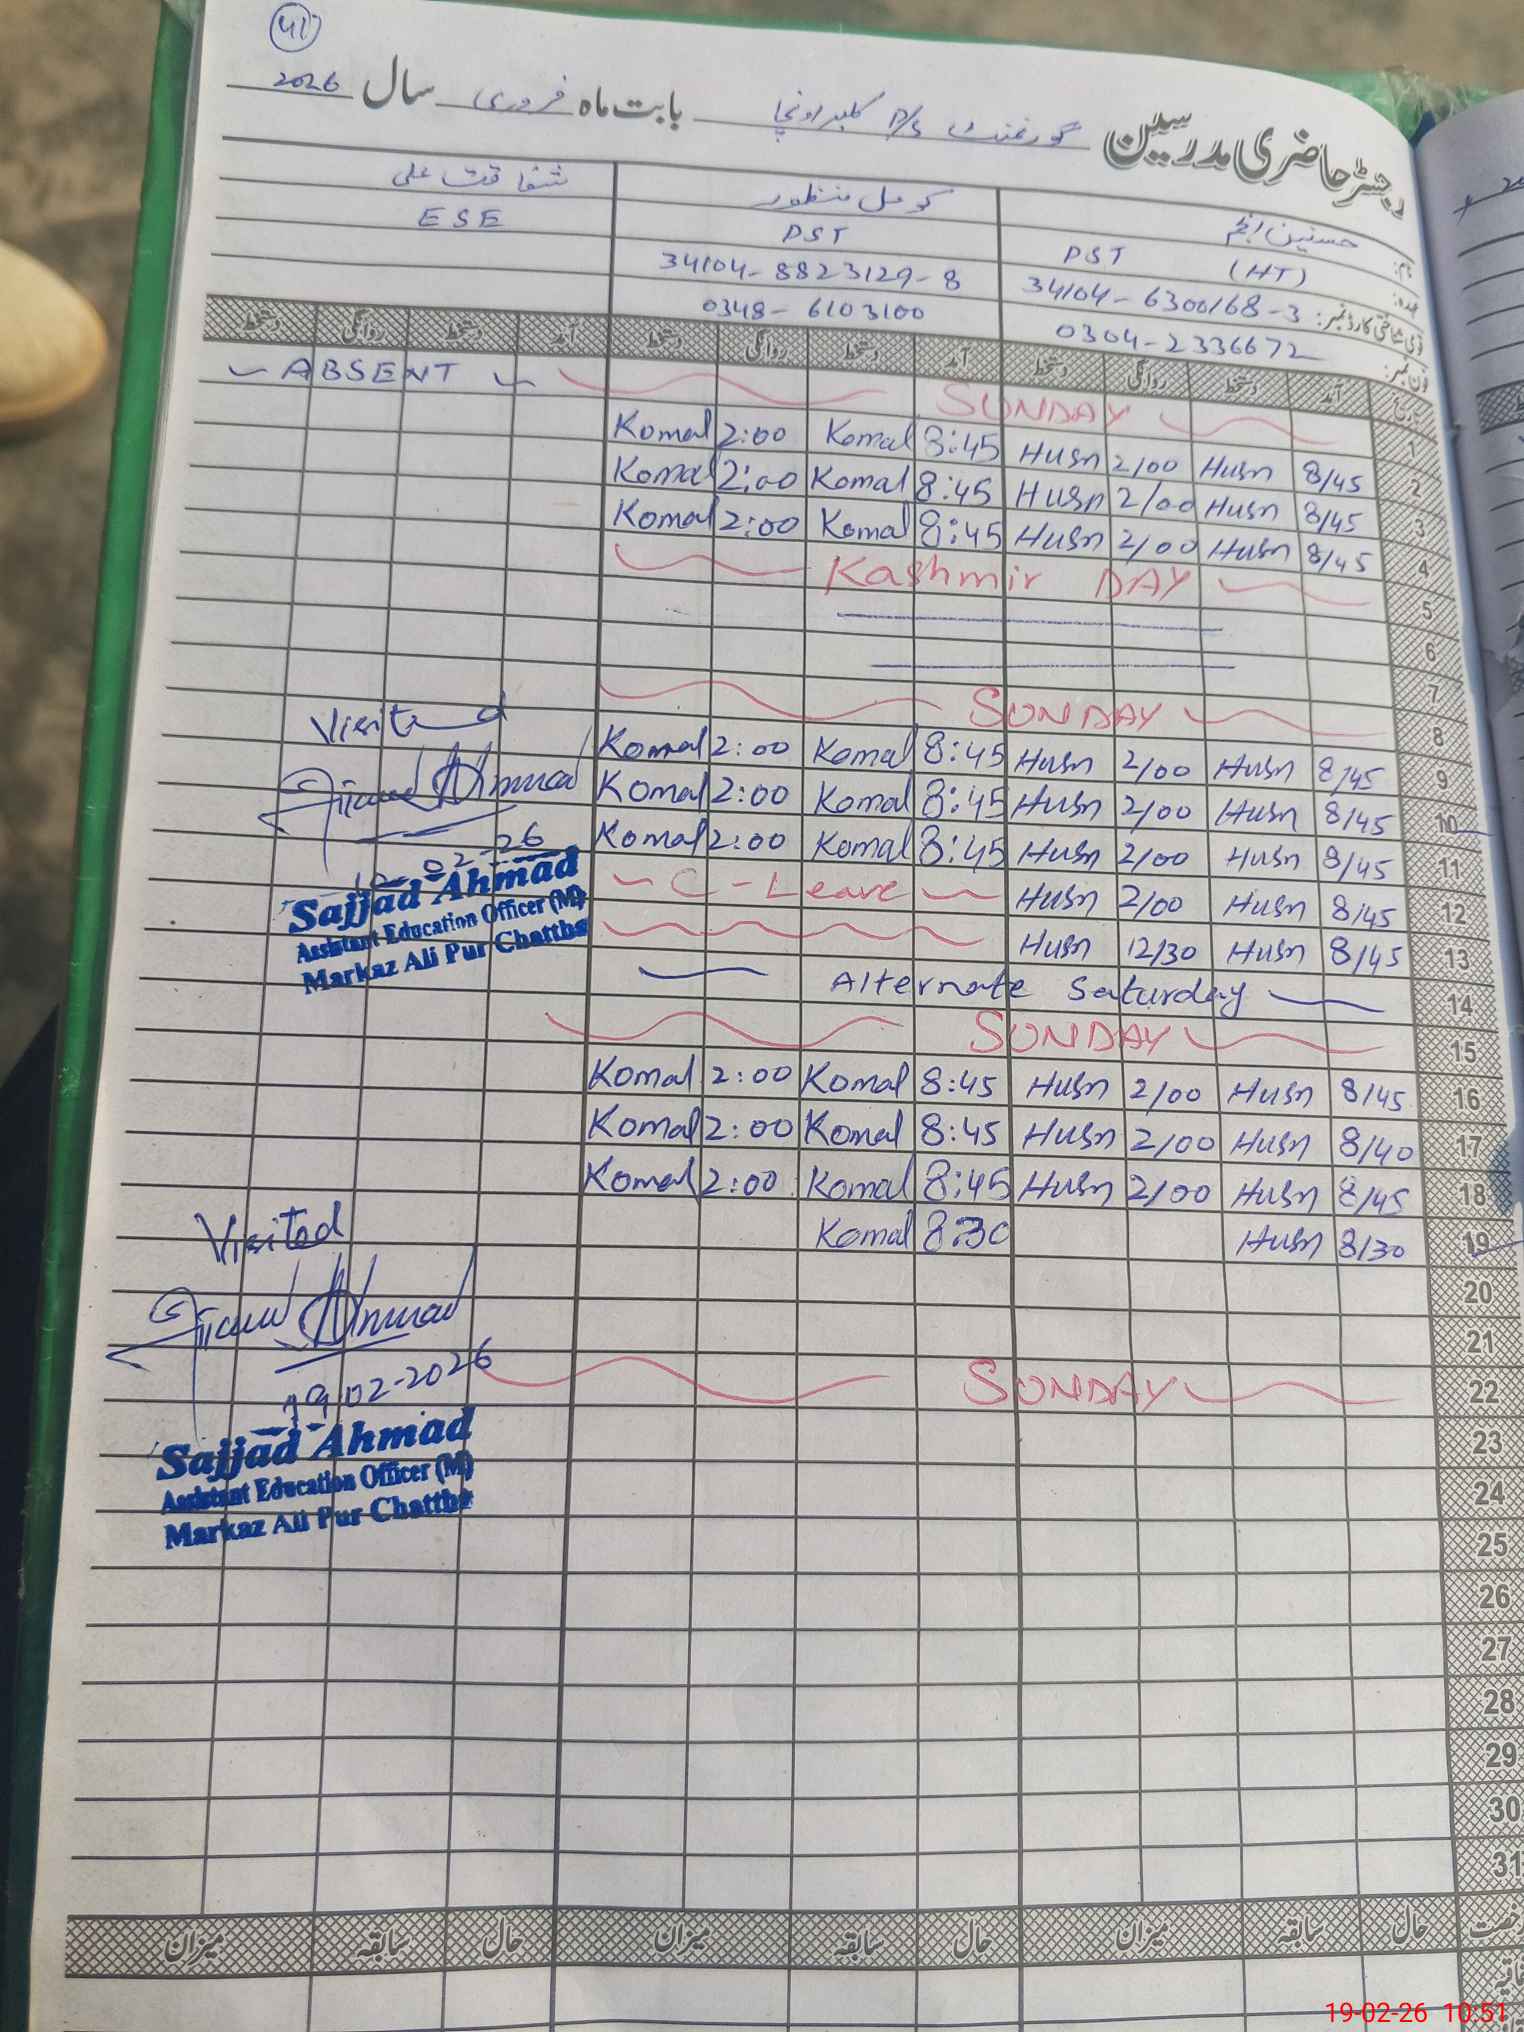 41
رجسٹر حاضری مدرسین گورنمنٹ P/S کلیر اونچا بابت ماہ فروری سال 2026
نام: حسنین انجم کومل منظور شفاقت علی
عہدہ: PST (HT) PST ESE
قومی شناختی کارڈ نمبر: 34104-6300168-3 34104-8823129-8
فون نمبر: 0304-2336672 0348-6103100
تاریخ آمد دستخط روانگی دستخط آمد دستخط روانگی دستخط آمد دستخط روانگی دستخط
1 SUNDAY ABSENT
2 8/45 Husn 2/00 Husn 8:45 Komal 2:00 Komal
3 8/45 Husn 2/00 Husn 8:45 Komal 2:00 Komal
4 8/45 Husn 2/00 Husn 8:45 Komal 2:00 Komal
5 Kashmir DAY
6
7
8 SUNDAY
9 8/45 Husn 2/00 Husn 8:45 Komal 2:00 Komal
10 8/45 Husn 2/00 Husn 8:45 Komal 2:00 Komal
11 8/45 Husn 2/00 Husn 8:45 Komal 2:00 Komal
12 8/45 Husn 2/00 Husn C-Leave
13 8/45 Husn 12/30 Husn
14 Alternate Saturday
15 SUNDAY
16 8/45 Husn 2/00 Husn 8:45 Komal 2:00 Komal
17 8/40 Husn 2/00 Husn 8:45 Komal 2:00 Komal
18 8/45 Husn 2/00 Husn 8:45 Komal 2:00 Komal
19 8/30 Husn 8:30 Komal
20
21
22 SUNDAY
23
24
25
26
27
28
29
30
31
Visited
Sajjad Ahmad
02-26
Sajjad Ahmad
Assistant Education Officer (M)
Markaz Ali Pur Chattha
Visited
Sajjad Ahmad
19-02-2026
Sajjad Ahmad
Assistant Education Officer (M)
Markaz Ali Pur Chattha
رخصت حال سابقہ میزان حال سابقہ میزان حال سابقہ میزان
19-02-26 10:51